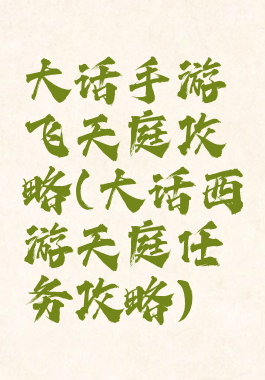 大话手游
飞天庭攻
略(大话西
游天庭任
务攻略)